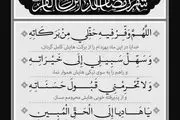 شهر رمضان الذی انزل فیه القرآن
اَللّهُمَّ وَفِّرْ فیهِ حَظّی مِنْ بَرَکاتِهِ
خدایا در این ماه بهره‌ام را از برکت هایش کامل گردان،
وَ سَهِّلْ سَبیلی اِلی خَیْراتِهِ
و راهم را به سوی نیکی هایش هموار نما،
وَ لا تَحْرِمْنی قَبُولَ حَسَناتِهِ
و از پذیرفته خوبی هایش محرومم مساز،
یا هادِیاً اِلَی الْحَقِّ الْمُبینِ